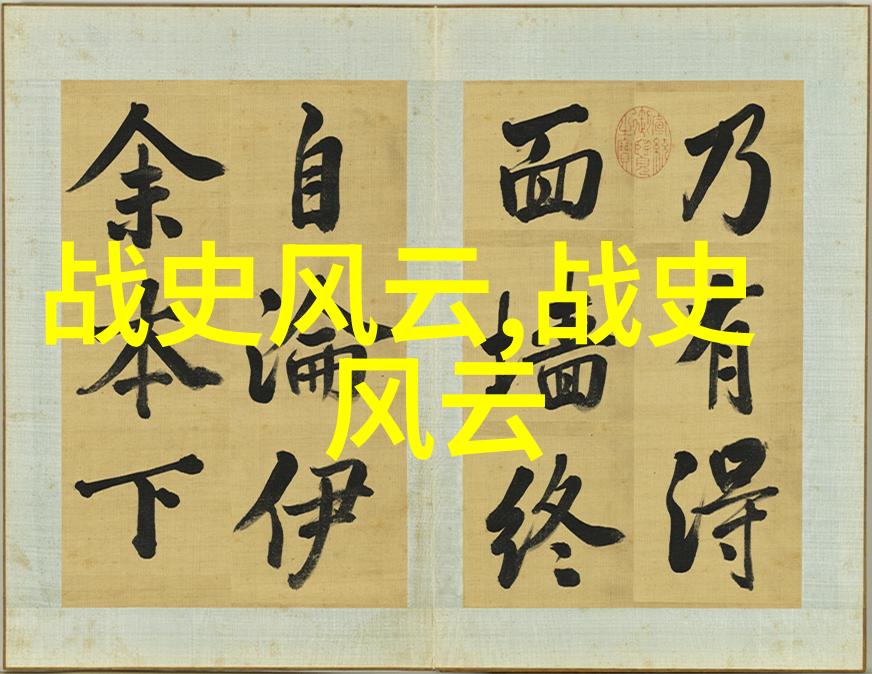 战史风云,战史
风云
乃有得
面墙终
自淪伊
余本下